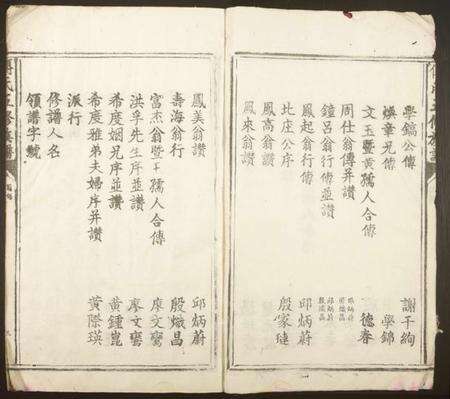 學鎬公傳 謝干絢
煥章兄傳 學錦
文玉暨黄孺人合傳 德春
周仕翁傳并讚
鐘呂翁行傳並讚
鳳起翁行傳 邱炳蔚
北庄公序 殷家璉
鳳高翁讚
鳳來翁讚
鳳美翁讚 邱炳蔚
壽海翁行 殷熾昌
富杰翁暨王孺人合傳 廖文鸞
洪孚先生序並讚 廖文鸞
希度姻兄序並讚 黄鍾崑
希度雅弟夫婦序并讚 黄際瑛
派行
修譜人名
領譜字號